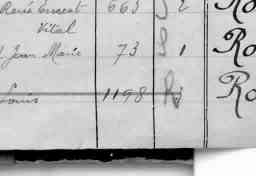 René Ernest 663 S 2 Ro
Vital
Jean Marie 73 S 1 Ro
Louis 1198 Ro